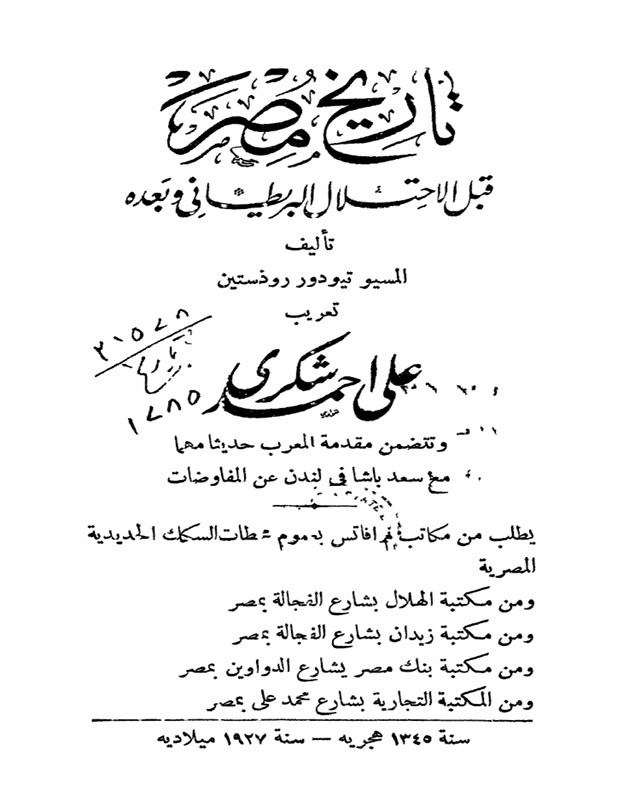 تاريخ مصر
قبل الاحتلال البريطاني وبعده
تأليف
المسيو تيودور روذستين
تعريب
٢١٥٧٨
على احمد شكرى
١٧٨٥
وتتضمن مقدمة المعرب حديثا مهما
مع سعد باشا في لندن عن المفاوضات
يطلب من مكاتب فاتس بعموم محطات السكك الحديدية
المصرية
ومن مكتبة الهلال بشارع الفجالة بمصر
ومن مكتبة زيدان بشارع الفجالة بمصر
ومن مكتبة بنك مصر بشارع الدواوين بمصر
ومن المكتبة التجارية بشارع محمد على بمصر
سنة ١٣٤٥ هجريه — سنة ١٩٢٧ ميلاديه